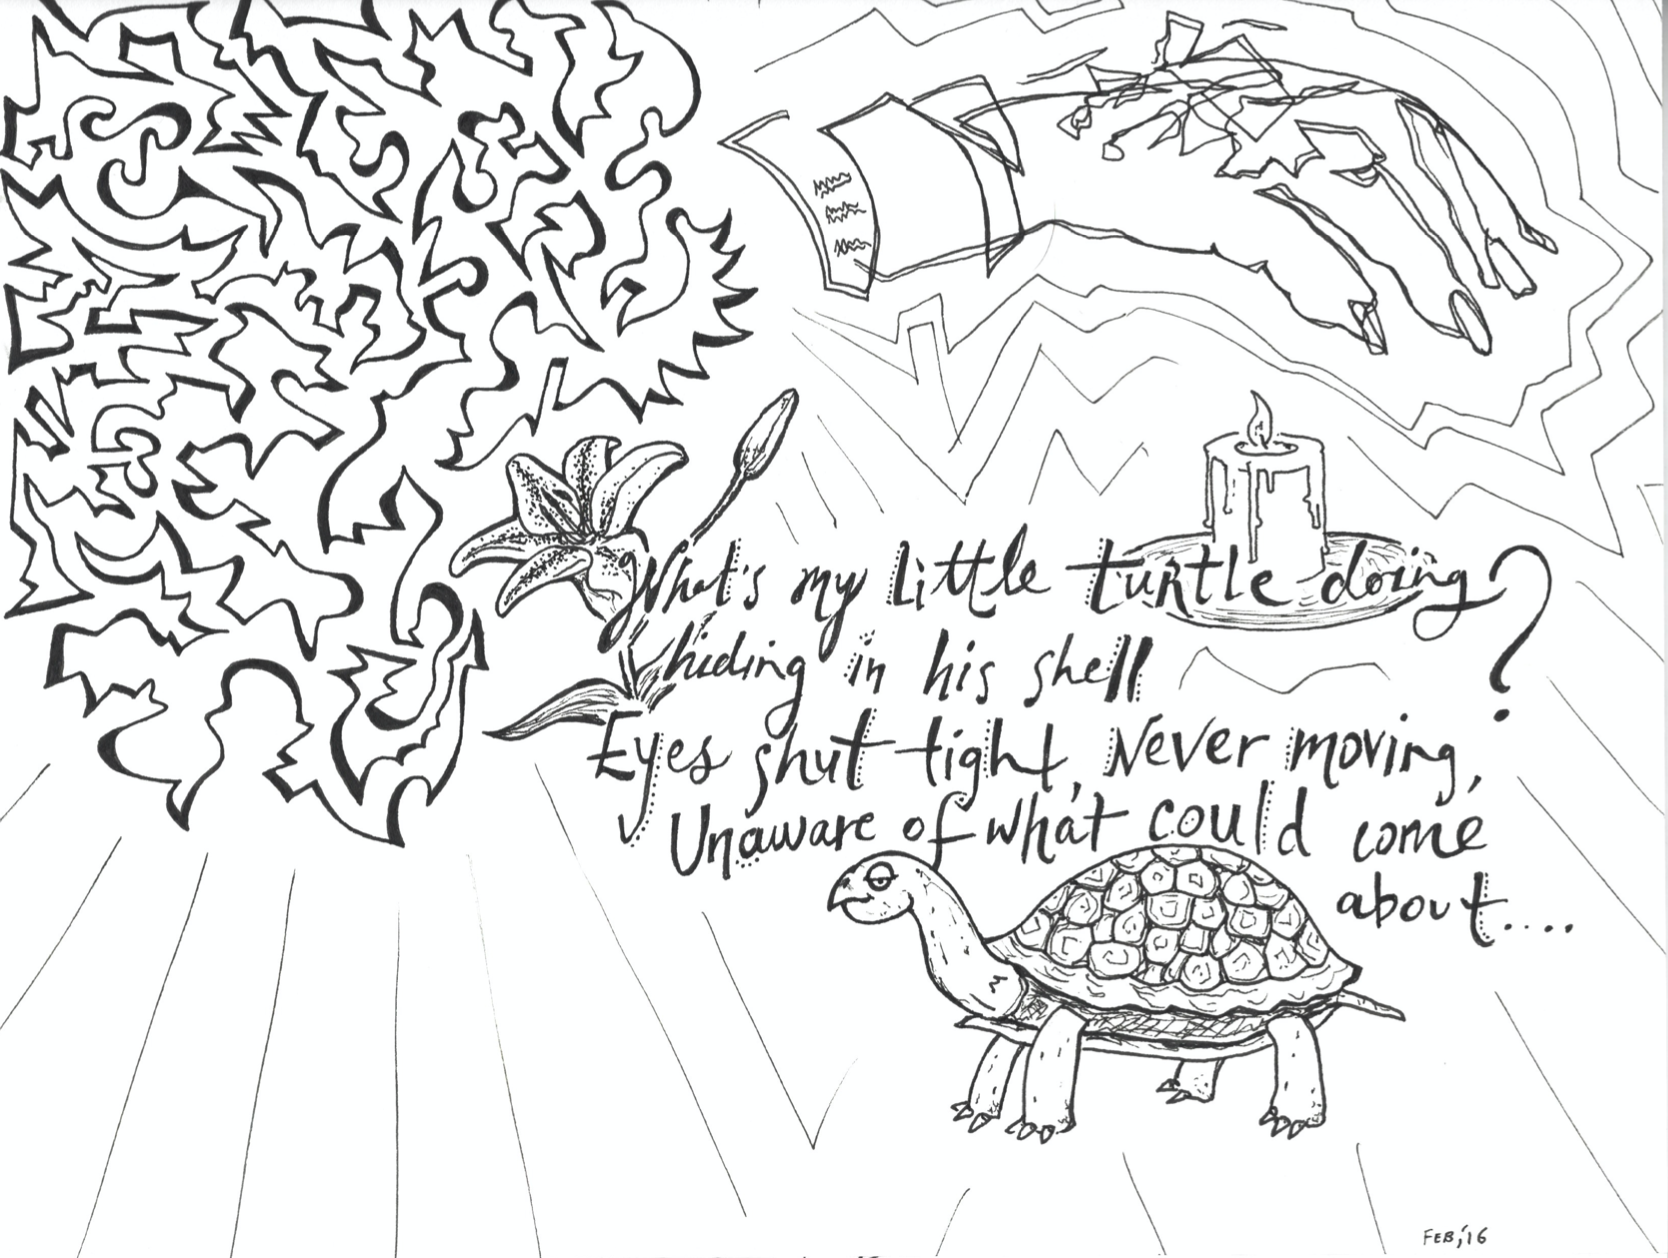 What's my little turtle doing?
hiding in his shell
Eyes shut tight, Never moving,
Unaware of what could come
about....
FEB,'16